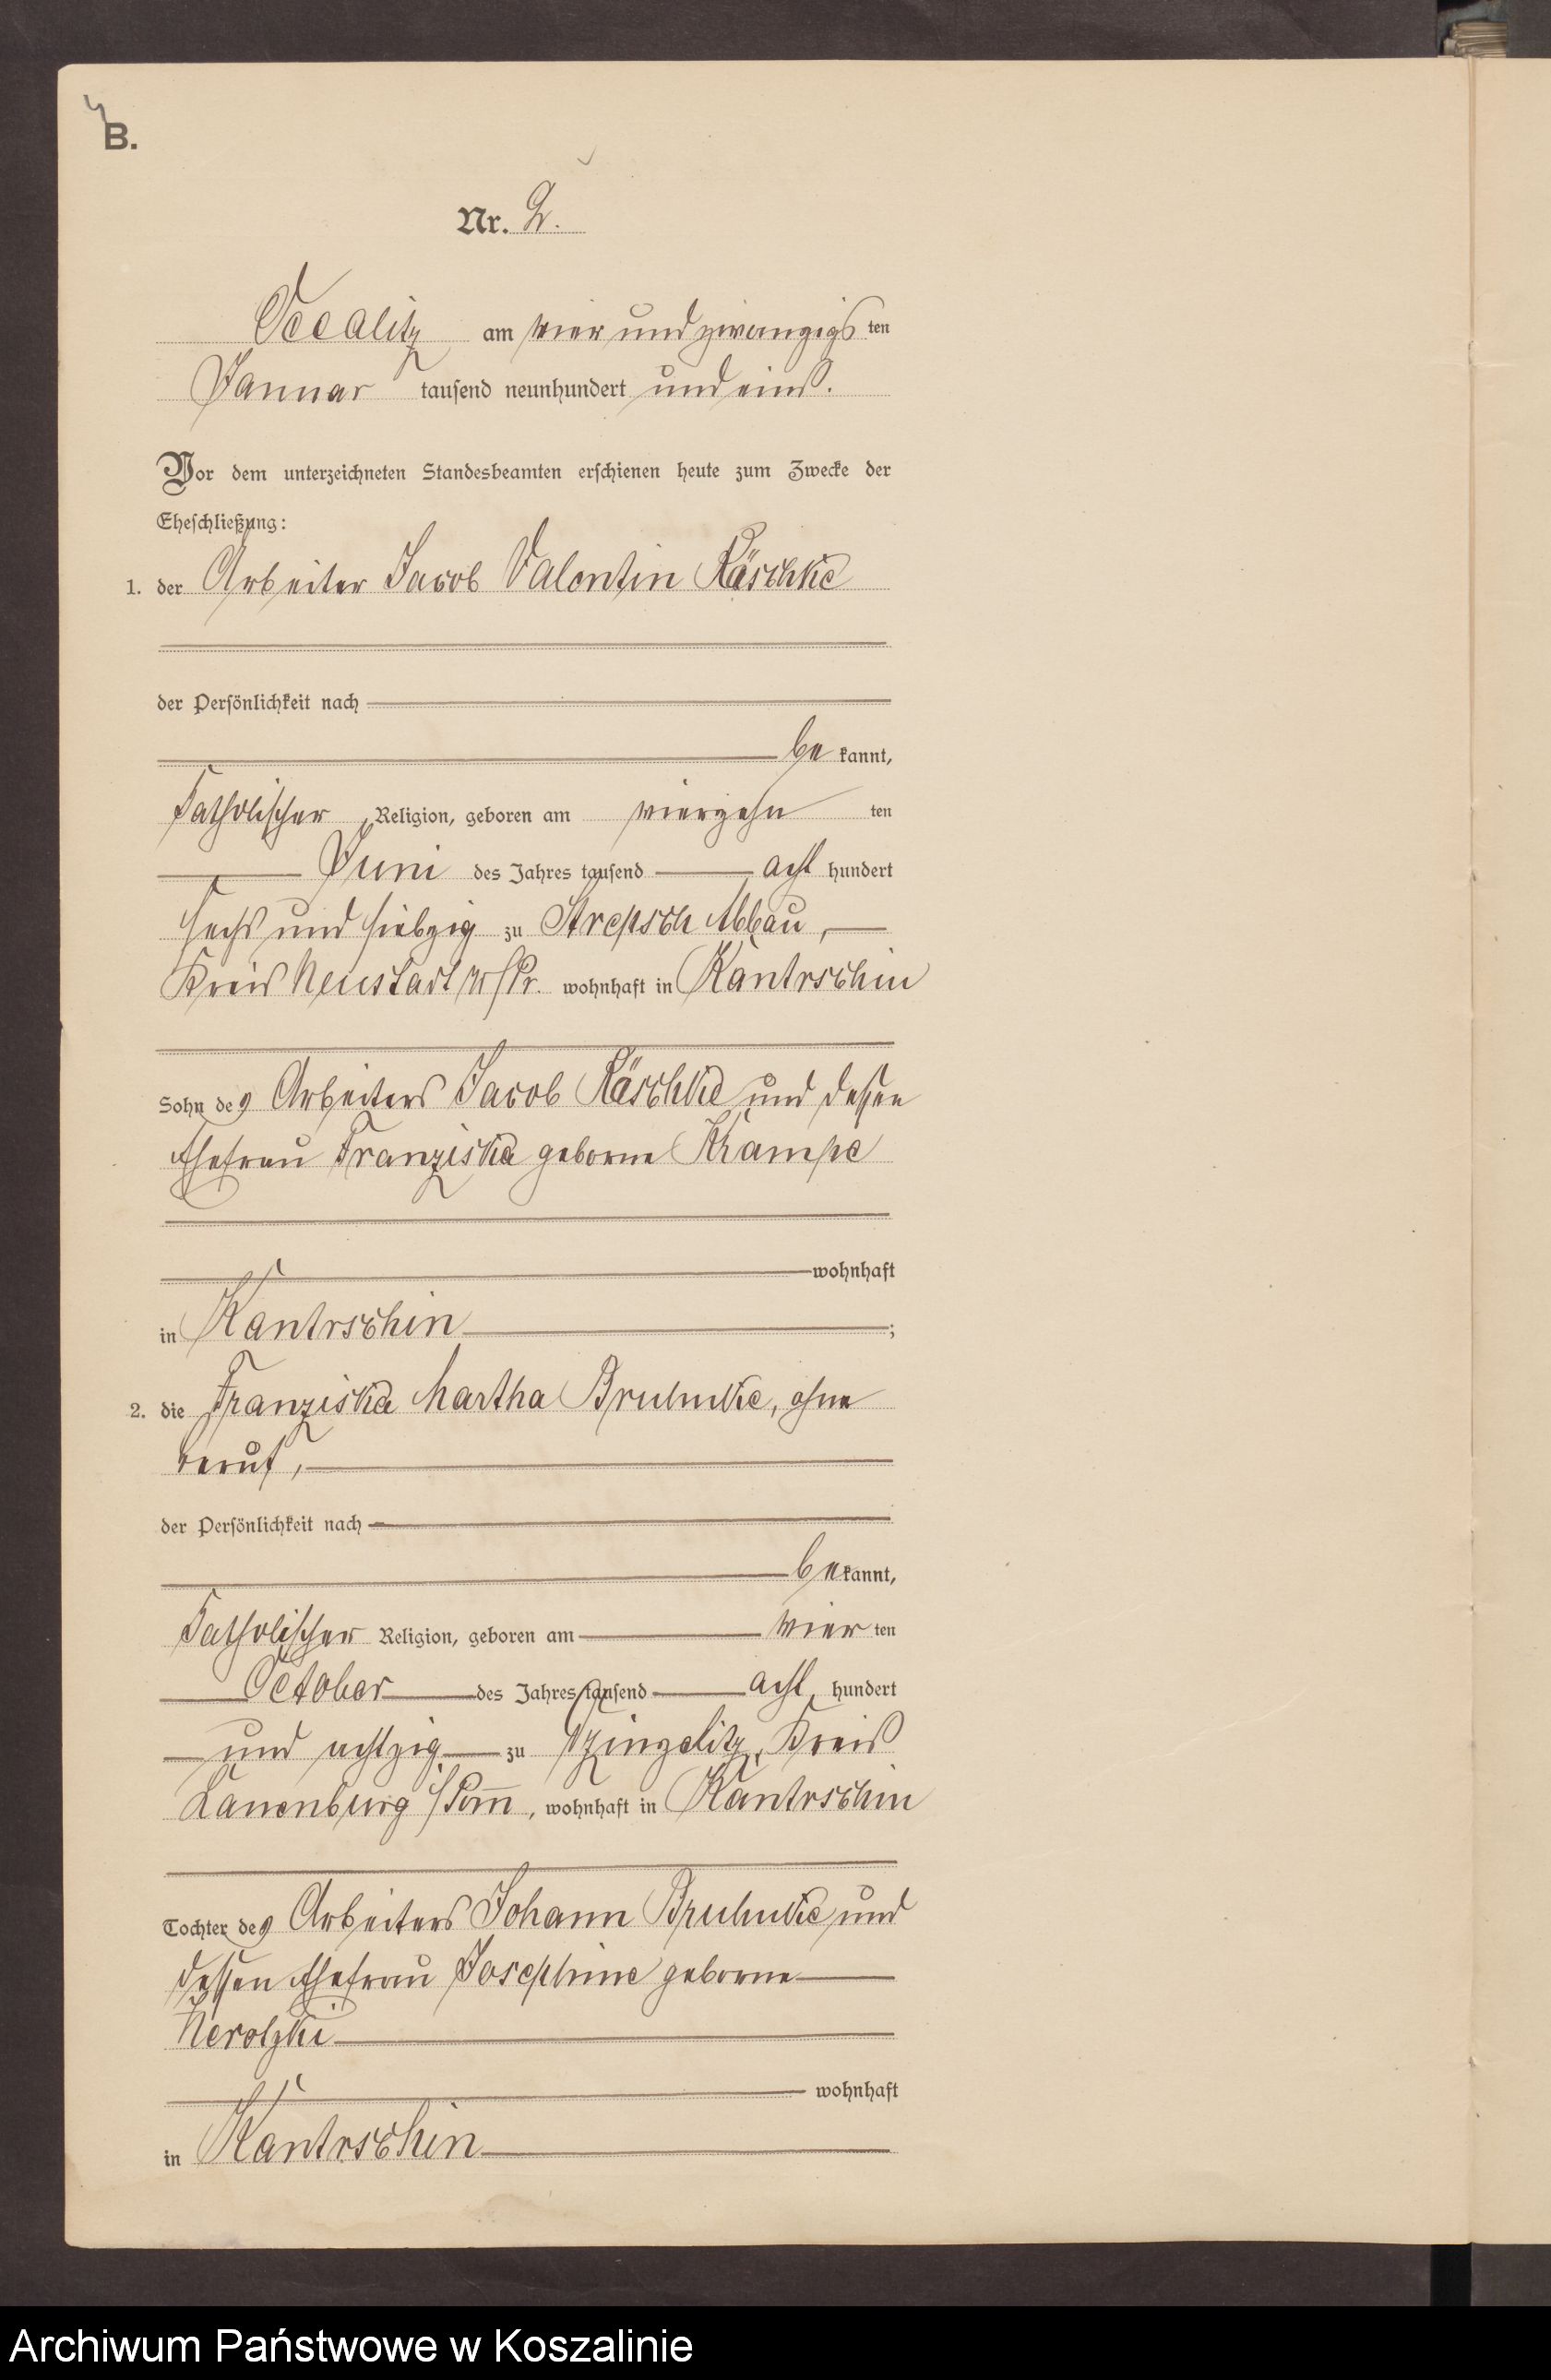 4
B.
Nr. 2.
Occalitz am vier und zwanzigs ten
Januar tausend neunhundert und eins.
Vor dem unterzeichneten Standesbeamten erschienen heute zum Zwecke der
Eheschließung:
1. der Arbeiter Jacob Valentin Räschke
der Persönlichkeit nach
be kannt,
katholischer Religion, geboren am vierzehn ten
Juni des Jahres tausend acht hundert
sechs und siebzig zu Strepsch Abbau,
Kreis Neustadt W/Pr. wohnhaft in Kantrschin
Sohn des Arbeiters Jacob Räschke und dessen
Ehefrau Franziska geborne Krampe
wohnhaft
in Kantrschin ;
2. die Franziska Martha Bruhnke, ohne
Beruf,
der Persönlichkeit nach
be kannt,
katholischer Religion, geboren am vier ten
October des Jahres tausend acht hundert
und achtzig zu Kreis
Lauenburg i/Pom̅, wohnhaft in Kantrschin
Tochter des Arbeiters Johann Bruhnke und
dessen Ehefrau Josephine geborne
Nerotzki
wohnhaft
in Kantrschin
Archiwum Państwowe w Koszalinie